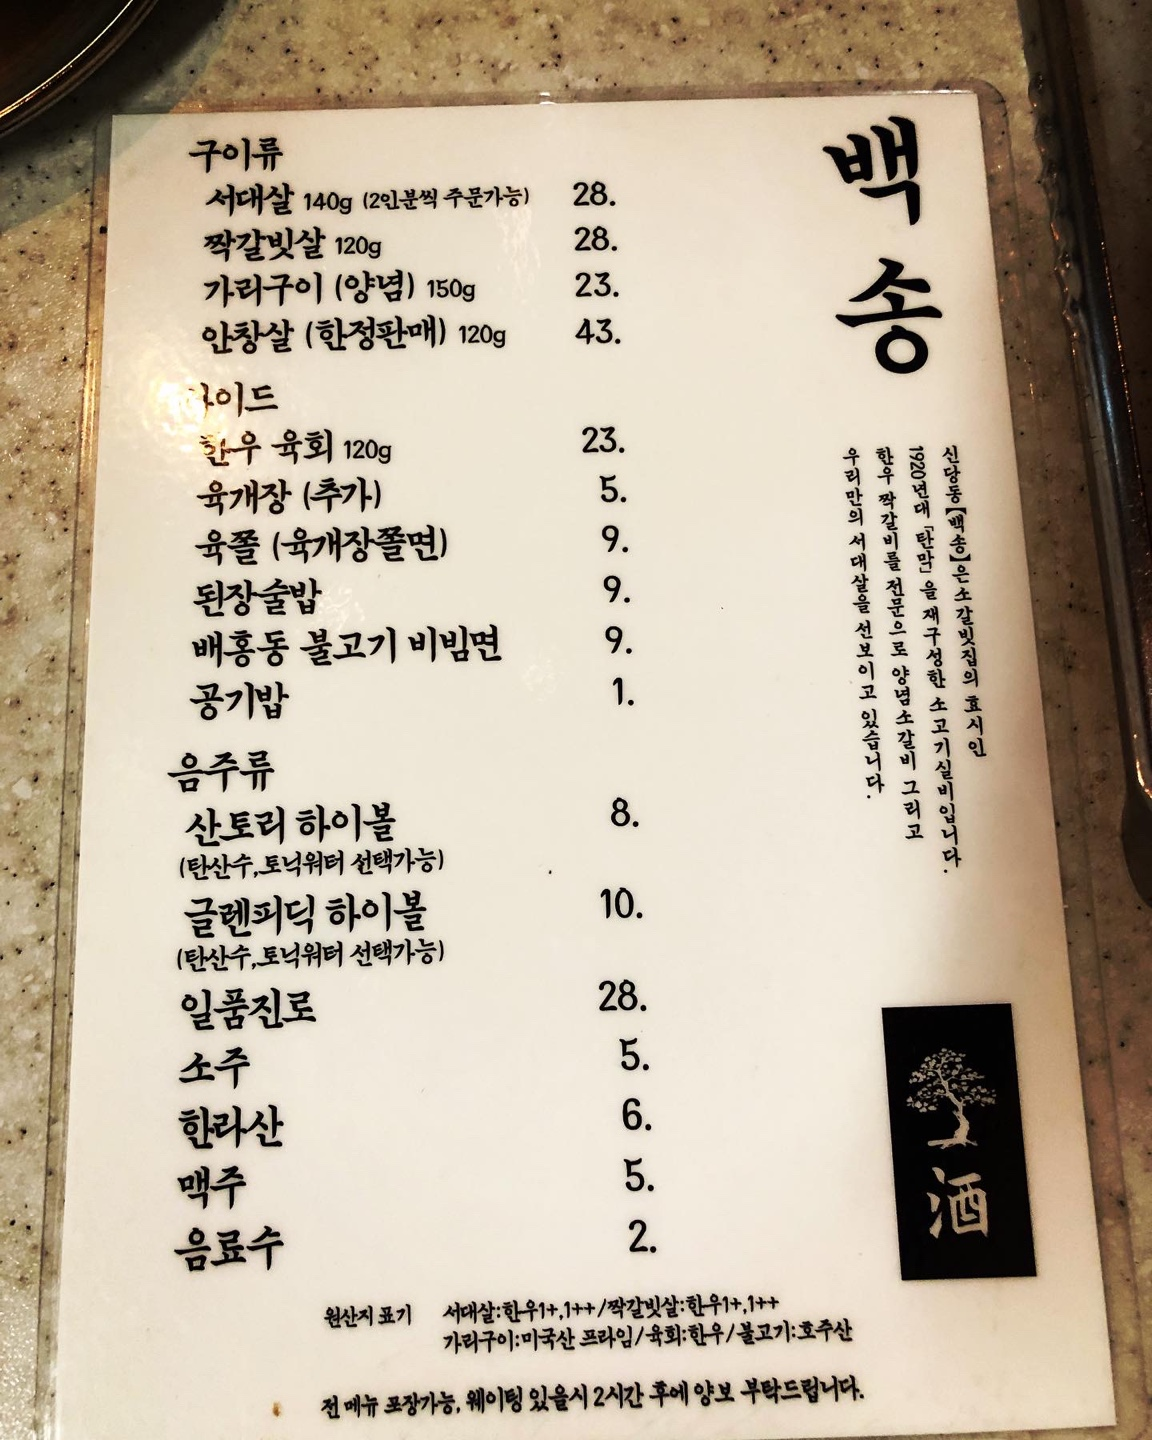 백송
구이류
서대살 140g (2인분씩 주문가능) 28.
짝갈빗살 120g 28.
가리구이 (양념) 150g 23.
안창살 (한정판매) 120g 43.
사이드
한우 육회 120g 23.
육개장 (추가) 5.
육쫄 (육개장쫄면) 9.
된장술밥 9.
배홍동 불고기 비빔면 9.
공기밥 1.
음주류
산토리 하이볼 8.
(탄산수,토닉워터 선택가능)
글렌피딕 하이볼 10.
(탄산수,토닉워터 선택가능)
일품진로 28.
소주 5.
한라산 6.
맥주 5.
음료수 2.
신당동【백송】은소갈빗집의 효시인
1920년대「탄막」을 재구성한 소고기실비입니다.
한우 짝갈비를 전문으로 양념소갈비 그리고
우리만의 서대살을 선보이고 있습니다.
酒
원산지 표기 서대살:한우1+,1++/짝갈빗살:한우1+,1++
가리구이:미국산 프라임/육회:한우/불고기:호주산
전 메뉴 포장가능, 웨이팅 있을시 2시간 후에 양보 부탁드립니다.